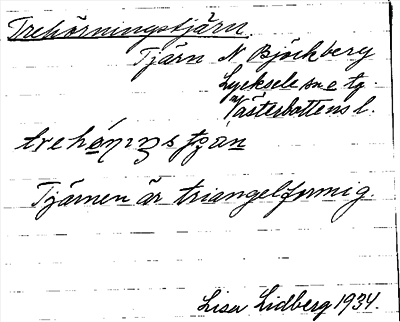 Trehörningstjärn.
Tjärn N Björkberg
Lycksele sn o tg.
Västerbottens l.
Tjärnen är triangelformig.
Lisa Lidberg 1934.